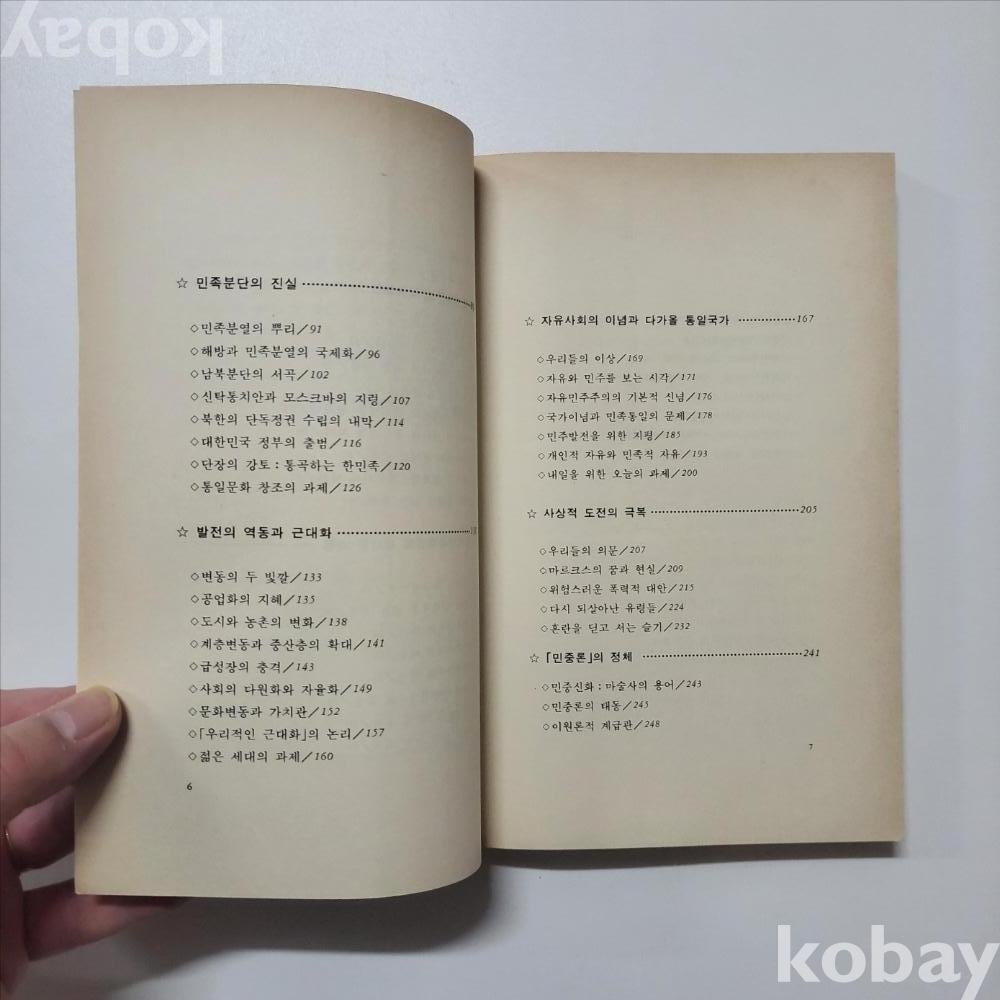 kobay
☆ 민족분단의 진실
◇민족분열의 뿌리/91
◇해방과 민족분열의 국제화/96
◇남북분단의 서곡/102
◇신탁통치안과 모스크바의 지령/107
◇북한의 단독정권 수립의 내막/114
◇대한민국 정부의 출범/116
◇단장의 강토 : 통곡하는 한민족/120
◇통일문화 창조의 과제/126
☆ 발전의 역동과 근대화
◇변동의 두 빛깔/133
◇공업화의 지혜/135
◇도시와 농촌의 변화/138
◇계층변동과 중산층의 확대/141
◇급성장의 충격/143
◇사회의 다원화와 자율화/149
◇문화변동과 가치관/152
◇「우리적인 근대화」의 논리/157
◇젊은 세대의 과제/160
6
☆ 자유사회의 이념과 다가올 통일국가 ···············167
◇우리들의 이상/169
◇자유와 민주를 보는 시각/171
◇자유민주주의의 기본적 신념/176
◇국가이념과 민족통일의 문제/178
◇민주발전을 위한 지평/185
◇개인적 자유와 민족적 자유/193
◇내일을 위한 오늘의 과제/200
☆ 사상적 도전의 극복 ·······································205
◇우리들의 의문/207
◇마르크스의 꿈과 현실/209
◇위험스러운 폭력적 대안/215
◇다시 되살아난 유령들/224
◇혼란을 딛고 서는 슬기/232
☆ 「민중론」의 정체 ·········································241
◇민중신화 : 마술사의 용어/243
◇민중론의 태동/245
◇이원론적 계급관/248
7
kobay